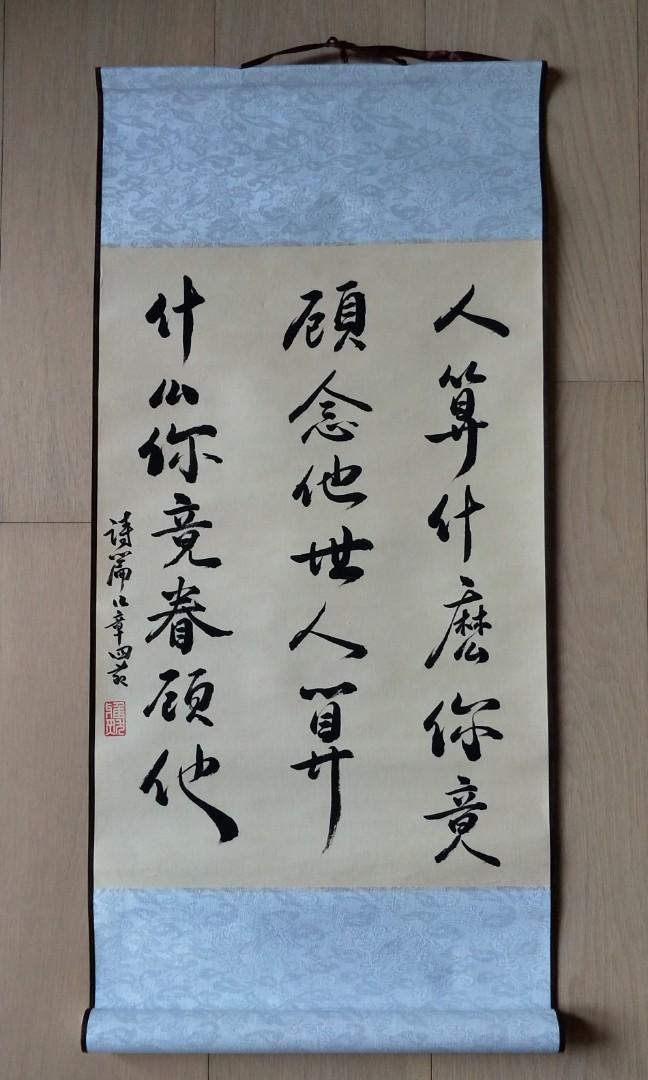 人算什麽你竟
顾念他世人算
什么你竟眷顾他
诗篇八章四节